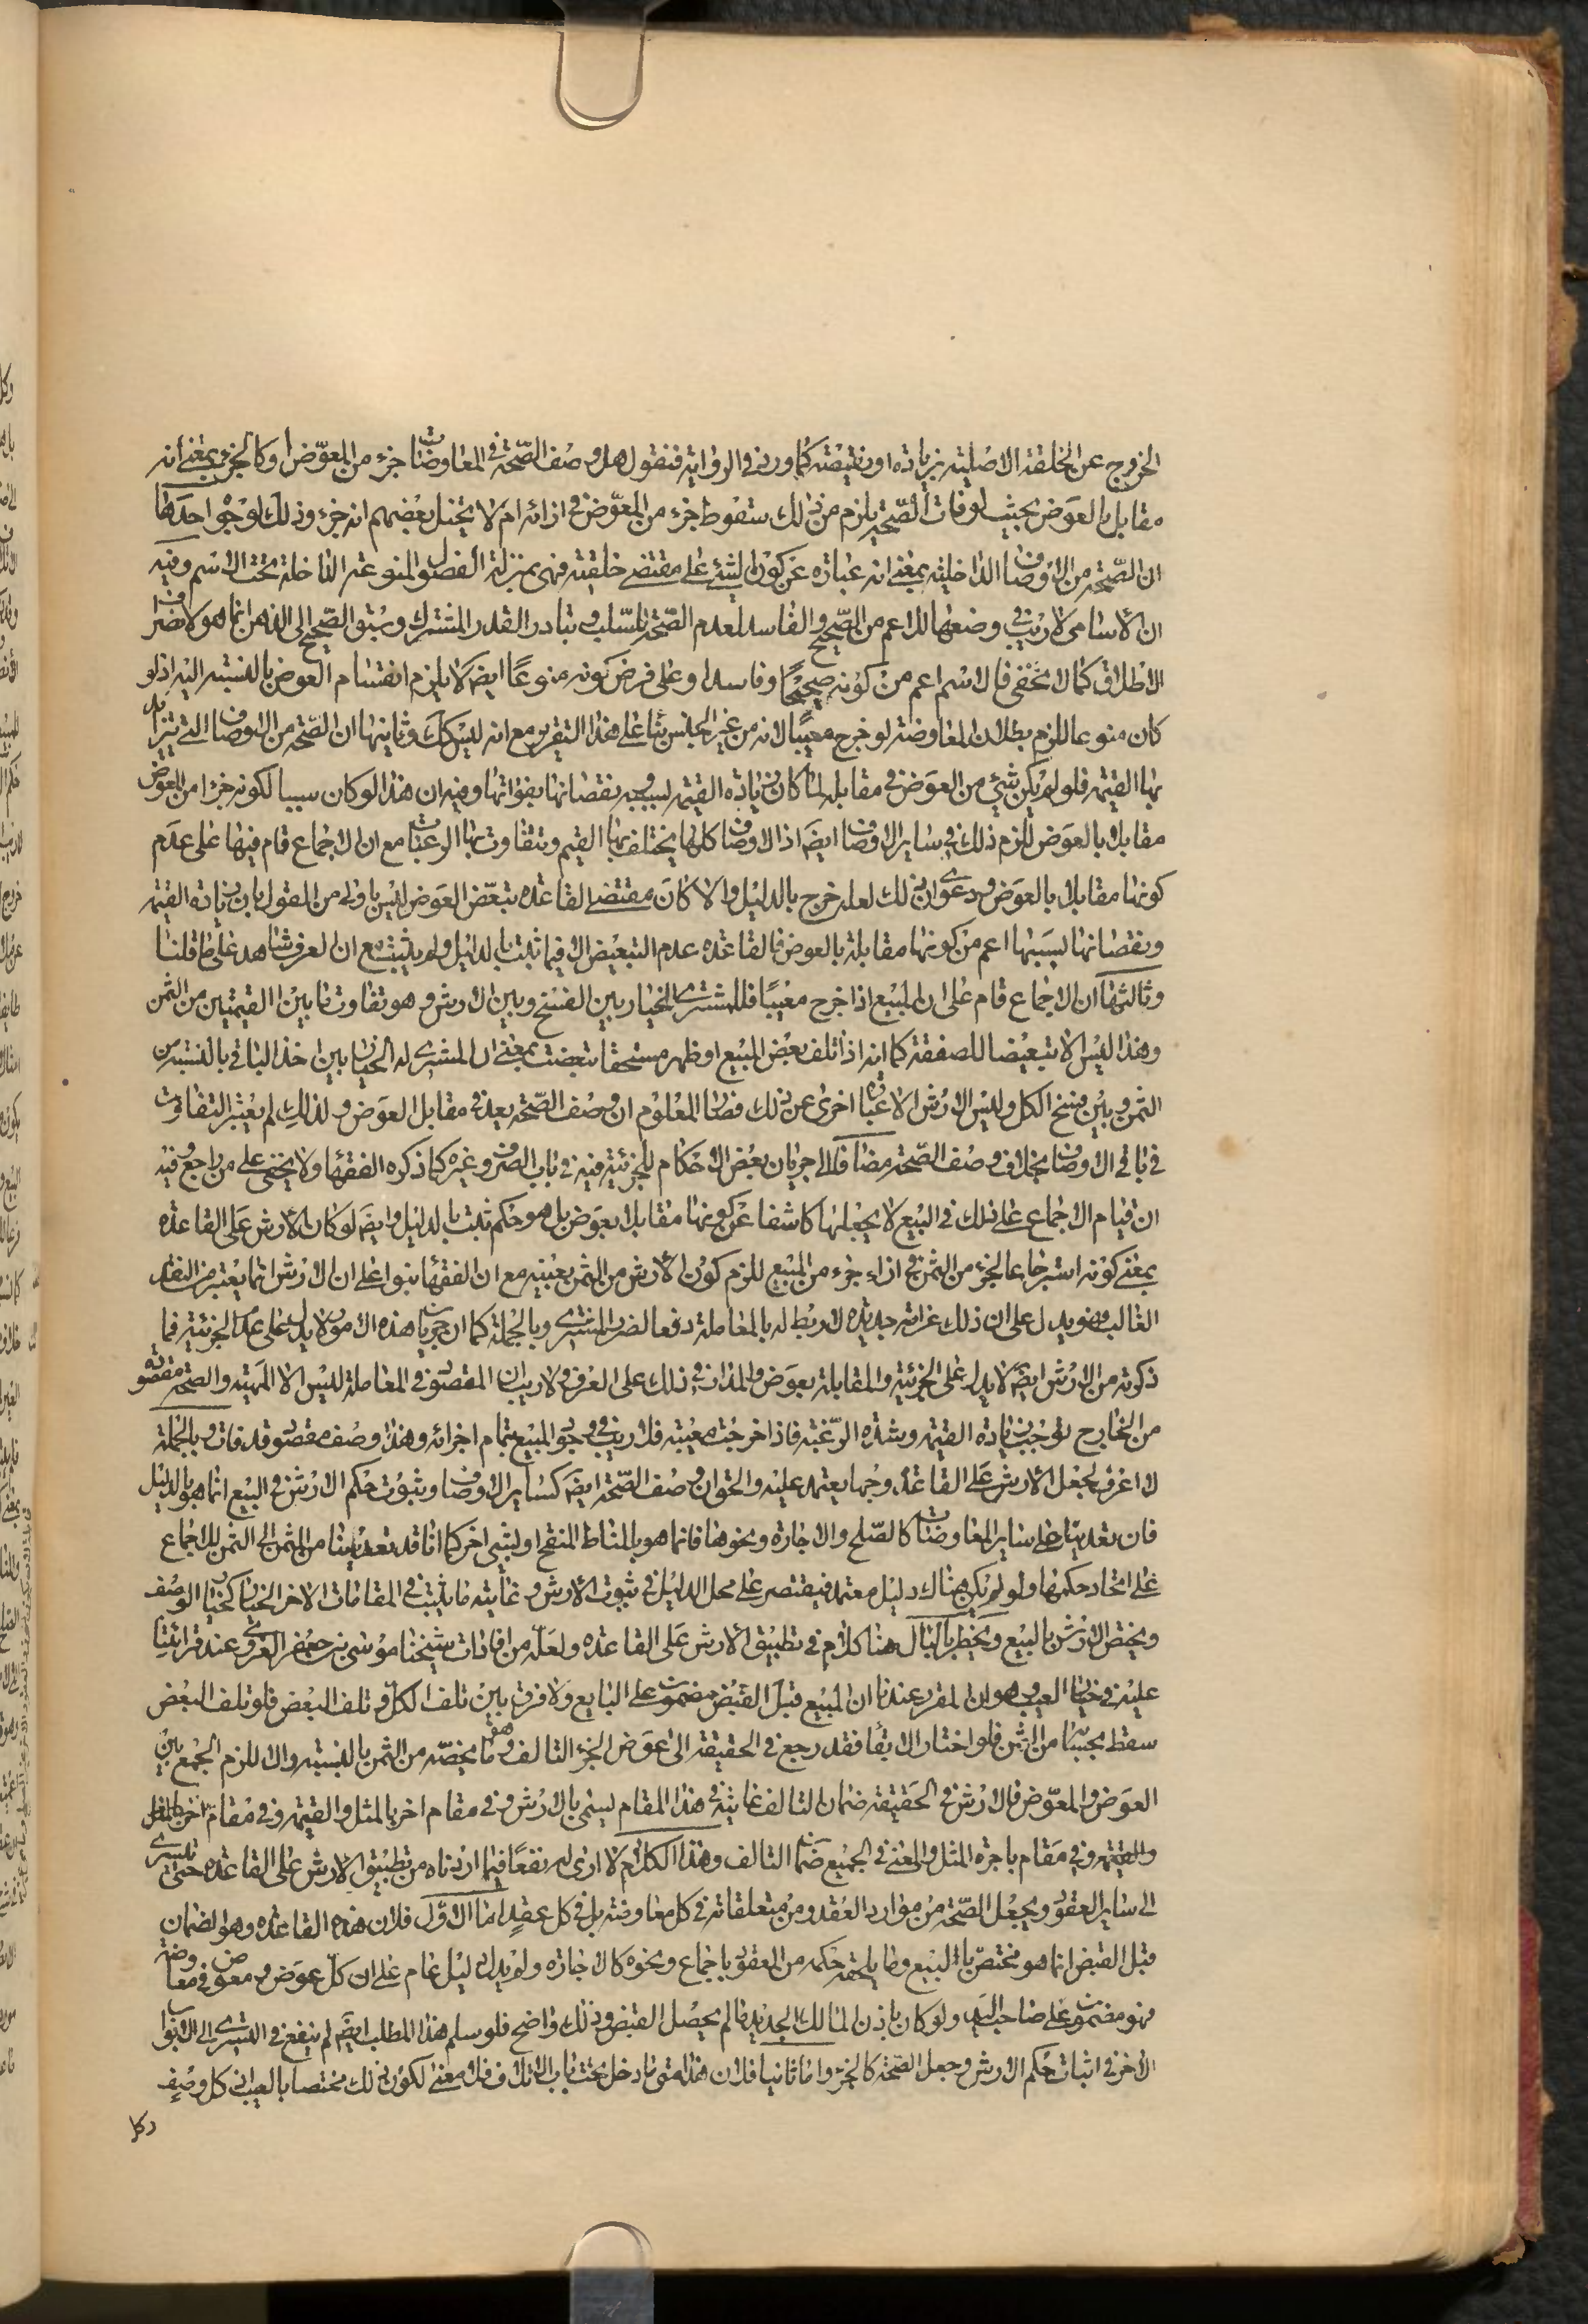 الخروج عن الخلقة الاصلية بزيادة او نقيصة كما ورد في الرواية فنقول هل وصف الصحة في المعاوضات جزء من المعوض او كالجزء بمعنى أنه
مقابل بالعوض بحيث لو فات الصحة يلزم من ذلك سقوط جزء من المعوض في ازائه ام لا يتخيل بعضهم انه جزء وذلك لوجوه احدها
ان الصحة من الاوصاف الداخلية بمعنى انه عبارة عن كون الشيء على مقتضى خلقته فهي بمنزلة الفصول المنوعة الداخلة تحت الاسم وفيه
ان الأسامي لا ريب في وضعها للاعم من الصحيح والفاسد لعدم الصحة السلب وتبادر القدر المشترك وسبق الصحيح الى الذهن انما هو لانصراف
الاطلاق كما لا يخفى فالاسم اعم من كونه صحيحًا وفاسدا وعلى فرض كونه منوعًا ايضا لا يلزم انقسام العوض بالنسبة اليه اذ لو
كان منوعا للزم بطلان المعاوضة لو خرج معيبًا لانه من غير الجنس بناء على هذا التقرير مع انه ليس كك وثانيها ان الصحة من الاوصاف التي تتزايد
بها القيمة فلو لم يكن شيء من العوض في مقابله لما كان زيادة القيمة بسببه ونقصانها بفواتها وفيه ان هذا لو كان سببا لكونه جزء من العوض
مقابلا بالعوض للزم ذلك في ساير الاوصاف ايضا اذ الاوصاف كلها يختلف بها القيم وتتفاوت بها الرغبات مع ان الاجماع قام فيها على عدم
كونها مقابلا بالعوض ودعوى ان ذلك لعله خرج بالدليل والا كان مقتضى القاعدة تبعض العوض ليس باولى من القول بان زيادة القيمة
ونقصانها بسببها اعم من كونها مقابلة بالعوض فالقاعدة عدم التبعيض الا فيما ثبت بالدليل ولم يثبت مع ان العرف شاهد على ما قلنا
وثالثها ان الاجماع قام على ان المبيع اذا خرج معيبًا فللمشتري الخيار بين الفسخ وبين الارش وهو تفاوت ما بين القيمتين من الثمن
وهذا ليس الا تبعيضا للصفقة كما انه اذا تلف بعض المبيع او ظهر مستحقا تبعضت بمعنى ان المشتري له الخيار بين اخذ الباقي بالنسبة من
الثمن وبين فسخ الكل وليس الارش الا عبارة اخرى عن ذلك فصار المعلوم ان وصف الصحة يعد في مقابل العوض ولذلك لم يعتبر التفاوت
في باقي الاوصاف بخلاف وصف الصحة مضافا الى جريان بعض الاحكام للجزئية فيه في باب الصرف وغيره كما ذكره الفقهاء ولا يخفى على من راجع وفيه
ان قيام الاجماع على ذلك في البيع لا يجعلها كاشفا عن كونها مقابلا بعوض بل هو حكم ثبت بالدليل وايضا لو كان الأرش على القاعدة
بمعنى كونه استرجاعا لجزء من الثمن في ازاء جزء من المبيع للزم كون الأرش من الثمن بعينه مع ان الفقهاء بنوا على ان الارش انما يعتبر من النقد
الغالب وهو يدل على ان ذلك غرامة جديدة لا ربط له بالمعاملة دفعا لضرر المشتري وبالجملة كما ان جريان هذه الامور لا يدل على عدم الجزئية فما
ذكرته من الارش ايضا لا يدل على الجزئية والمقابلة بعوض والمدار في ذلك على العرف ولا ريب ان المقصود في المعاملة ليس الا المهية والصحة مقصودة
من الخارج توجب زيادة القيمة وشدة الرغبة فاذا خرجت معيبة فلا ريب في وجود المبيع بتمام اجزائه وهذا وصف مقصود قد فات وبالجملة
لا اعرف لجعل الأرش على القاعدة وجها يعتمد عليه والحق ان وصف الصحة ايضا كساير الاوصاف وثبوت حكم الارش في البيع انما هو بالدليل
فان تعديناها على ساير المعاوضات كالصلح والاجارة ونحوها فانما هو بالمناط المنقح او لشيء اخر كما انا قد تعدينا من المثمن الى الثمن للاجماع
على اتحاد حكمها ولو لم يكن هناك دليل معتمد فيقتصر على محل الدليل في ثبوت الأرش وغايته ما يثبت في المقامات الاخر الخيار كخيار الوصف
ويختص الارش بالبيع ويخطر بالبال هنا كلام في تطبيق الأرش على القاعدة ولعله من افادات شيخنا موسى بن جعفر الغروي عند قرائتنا
عليه في خيار العيب وهو ان المقرر عندنا ان المبيع قبل القبض مضمون على البايع ولا فرق بين تلف الكل وتلف البعض فلو تلف البعض
سقط بحسابه من الثمن فلو اختار الابقاء فقد رجع في الحقيقة الى عوض الجزء التالف وهو ما يخصه من الثمن بالنسبة والا للزم الجمع بين
العوض والمعوض فالارش في الحقيقة ضمان التالف غايته في هذا المقام يسمى بالارش وفي مقام اخر بالمثل والقيمة وفي مقام اخر بالمثل
والقيمة وفي مقام باجرة المثل والمعنى في الجميع ضمان التالف وهذا الكلام لا ارى له نفعًا فيما اردناه من تطبيق الأرش على القاعدة حتى يسري
الى ساير العقود ويجعل الصحة من موارد العقد ومن متعلقاته في كل معاوضة بل في كل عقد اما الاول فلان هذه القاعدة وهو الضمان
قبل القبض انما هو مختص باب البيع وما يلحقه حكمه من العقود باجماع ونحوه كالاجارة ولم يدل دليل عام على ان كل عوض ومعوض في معاوضة
فهو مضمون على صاحب اليد ولو كان باذن المالك الجديد ما لم يحصل القبض وذلك واضح فلو سلم هذا المطلب ايضا لم ينفع في التسري الى الابواب
الاخر في اثبات حكم الارش وجعل الصحة كالجزء واما ثانيا فلان هذا متى ما دخل تحت باب الاتلاف فلا معنى لكون ذلك مختصا بالعيب اذ كل وصف